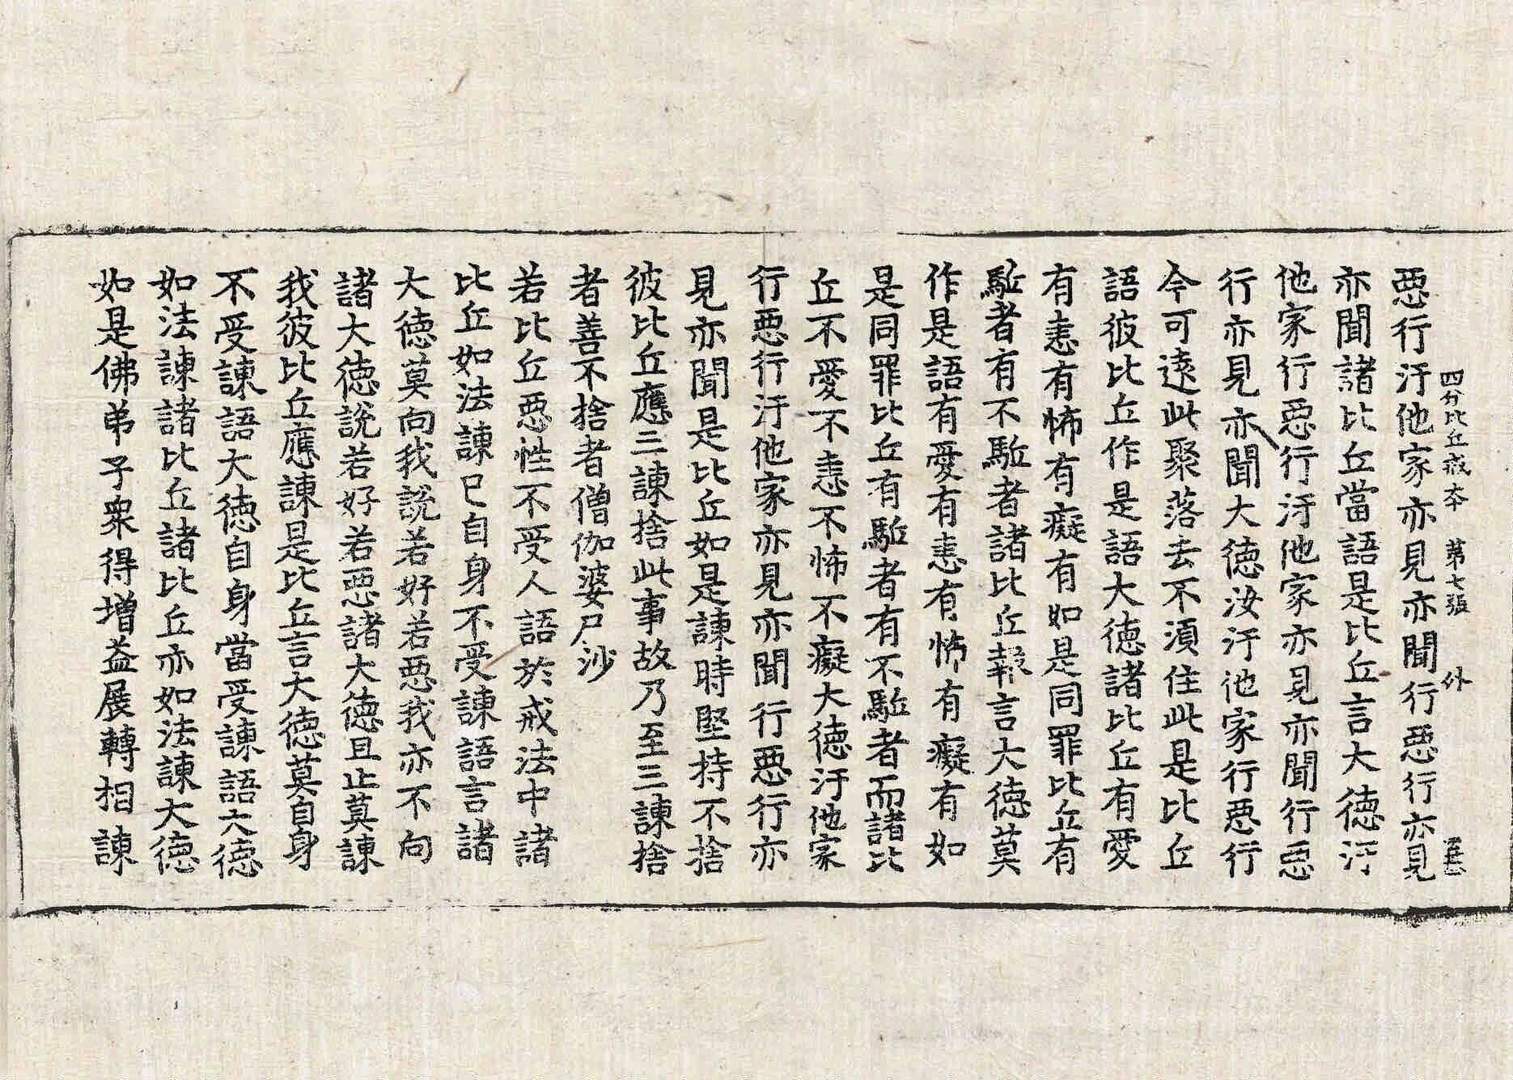 四分比丘戒本　第七張　外
惡行汙他家亦見亦聞行惡行亦見
亦聞諸比丘當語是比丘言大德汙
他家行惡行汙他家亦見亦聞行惡
行亦見亦聞大德汝汙他家行惡行
今可遠此聚落去不須住此是比丘
語彼比丘作是語大德諸比丘有愛
有恚有怖有癡有如是同罪比丘有
駈者有不駈者諸比丘報言大德莫
作是語有愛有恚有怖有癡有如
是同罪比丘有駈者有不駈者而諸比
丘不愛不恚不怖不癡大德汙他家
行惡行汙他家亦見亦聞行惡行亦
見亦聞是比丘如是諫時堅持不捨
彼比丘應三諫捨此事故乃至三諫捨
者善不捨者僧伽婆尸沙
若比丘惡性不受人語於戒法中諸
比丘如法諫已自身不受諫語言諸
大德莫向我說若好若惡我亦不向
諸大德說若好若惡諸大德且止莫諫
我彼比丘應諫是比丘言大德莫自身
不受諫語大德自身當受諫語大德
如法諫諸比丘諸比丘亦如法諫大德
如是佛弟子衆得增益展轉相諫